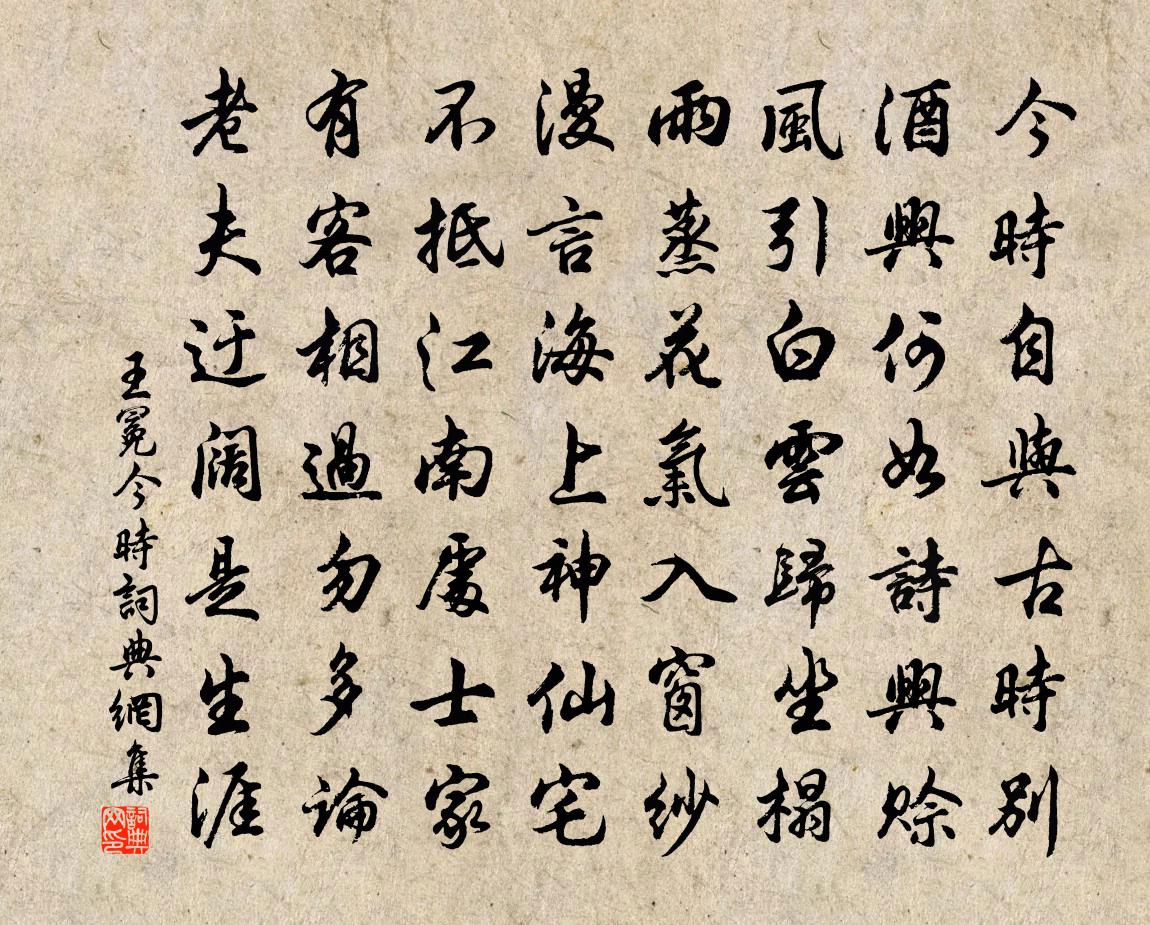 今時自與古時別
酒興何如詩興賒
風引白雲歸坐榻
雨蒸花氣入窗紗
漫言海上神仙宅
不抵江南處士家
有客相過勿多論
老夫迂闊是生涯
王冕今時詞典網集
詞典网印